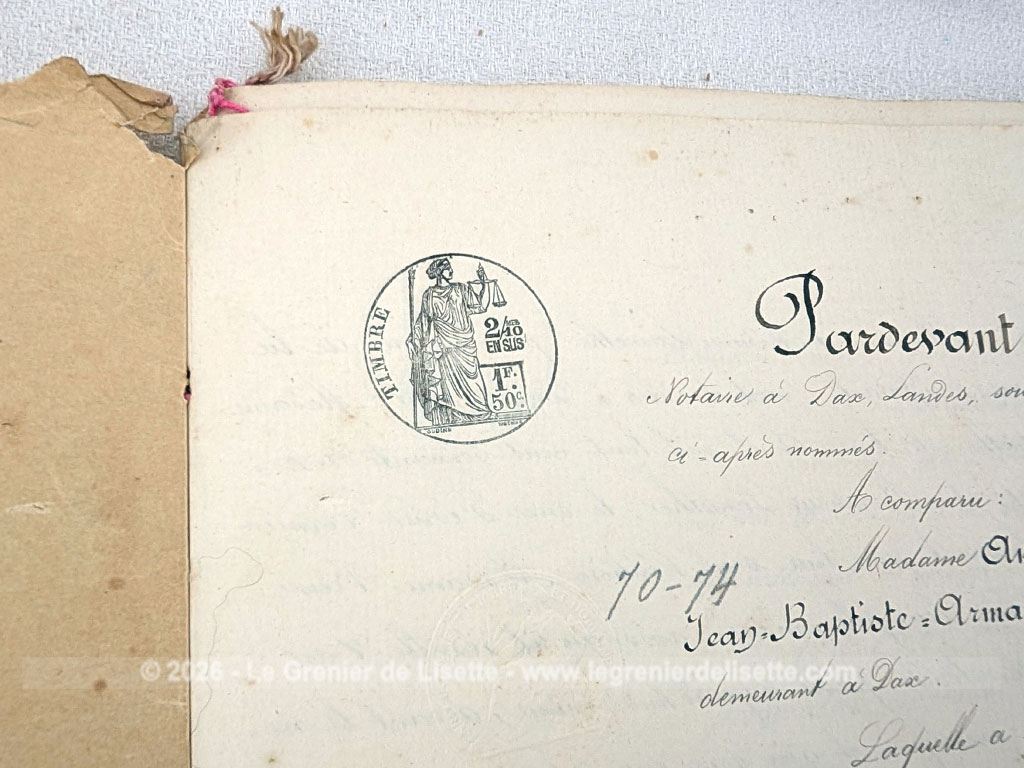 TIMBRE
2/10 MES.
EN SUS
1F.
50c.
OUDINÉ
Pardevant
Notaire à Dax, Landes, sou
ci-après nommés.
A comparu:
Madame
70-74
Jean-Baptiste-Arma
demeurant à Dax.
Laquelle a
© 2026 - Le Grenier de Lisette - www.legrenierdelisette.com